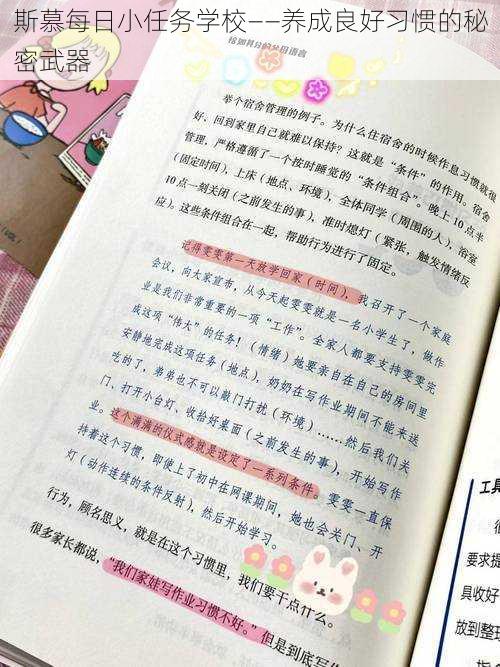 斯慕每日小任务学校——养成良好习惯的秘
密武器
恰如其分的父母语言
举个宿舍管理的例子。为什么住宿舍的时候作息习惯就很
好,回到家里自己就难以保持?这就是“条件”的作用。宿舍
管理,严格遵循了一个按时睡觉的“条件组合”。晚上10点半
(固定时间),上床(地点、环境),全体同学(周围的人),浴室
10点一刻关闭(之前发生的事),准时熄灯(紧张,触发情绪反
应)。这些条件组合在一起,帮助行为进行了固定。
记得雯雯第一天放学回家(时间),我召开了一个家庭
会议,向大家宣布,从今天起雯雯就是一名小学生了,做作
业是我们非常重要的一项“工作”。全家人都要支持雯雯完
成这项“伟大”的任务!(情绪)她要亲自在自己的房间里
安静地完成这项任务(地点),奶奶在写作业期间不能来送
吃的了,弟弟也不可以敲门打扰(环境)……然后我们关
门、打开小台灯、收拾好桌面(之前发生的事),开始写作
业。这个满满的仪式感就是设定了一系列条件。雯雯一直保
持着这个习惯,即使上了初中在网课期间,她也会关门、开
灯(动作连续的条件反射),然后开始学习。
行为,顾名思义,就是在这个习惯里,我们要干点什么。
很多家长都说,“我们家娃写作业习惯不好。”但是到底写
工具
要求提
具收好
放到整理